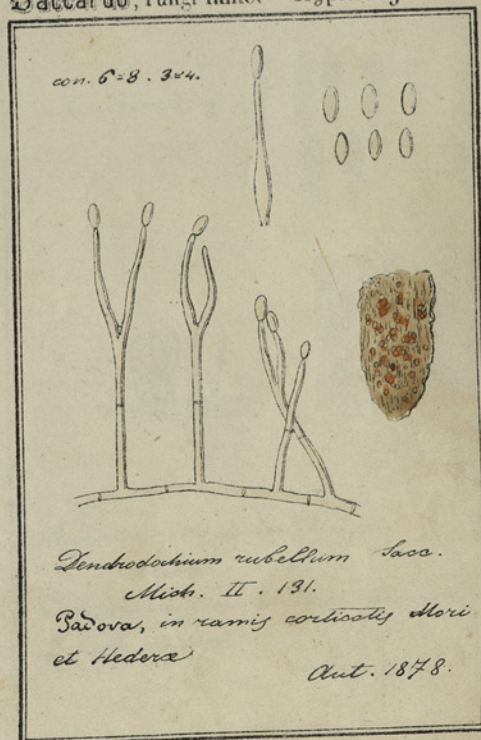 Saccardo, Fungi
con. 6=8 . 3=4.
Dendrodochium rubellum Sacc.
Mich. II . 131.
Padova, in ramis corticatis Mori
et Hederæ
Aut. 1878.